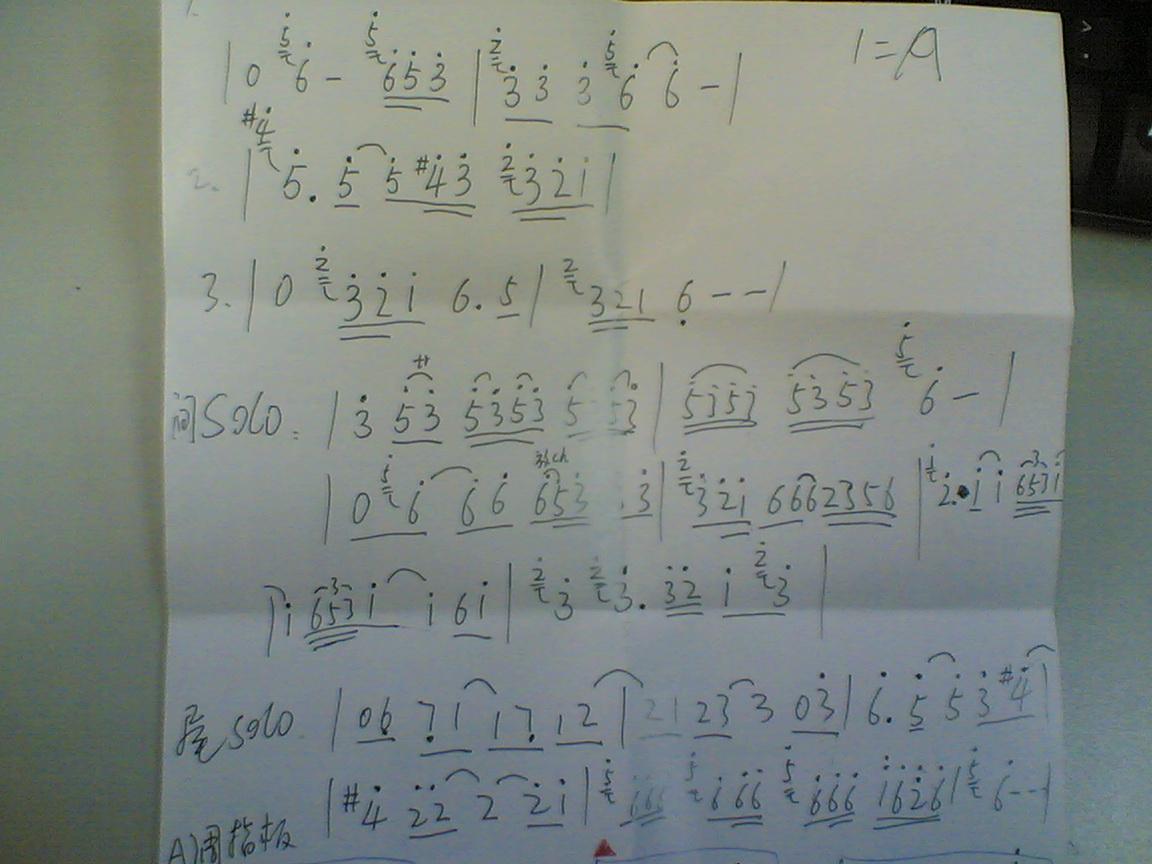 1.
| 0 5 6 - 5 6 5 3 | 2 3 3 3 5 6 6 - | 1=A
2. | #4 5. 5 5 #4 3 2 3 2 1 |
3. | 0 2 3 2 1 6. 5 | 2 3 2 1 6 - - |
间Solo: | 3 5 3 5 3 5 3 5 5 3 | 5 3 5 3 5 3 5 3 5 6 - |
| 0 5 6 6 6 6 5 3 . 3 | 2 3 2 1 6 6 6 2 3 5 6 | 1 2. 1 1 6 5 3 1
1 6 5 3 1 1 6 1 | 2 3 2 3. 3 2 1 2 3 |
尾Solo | 0 6 7 1 1 7 1 2 | 2 1 2 3 3 0 3 | 6. 5 5 3 #4 |
| #4 2 2 2 2 1 | 5 6 6 6 5 6 6 6 5 6 6 6 1 6 2 6 | 5 6 - - |
A调指板